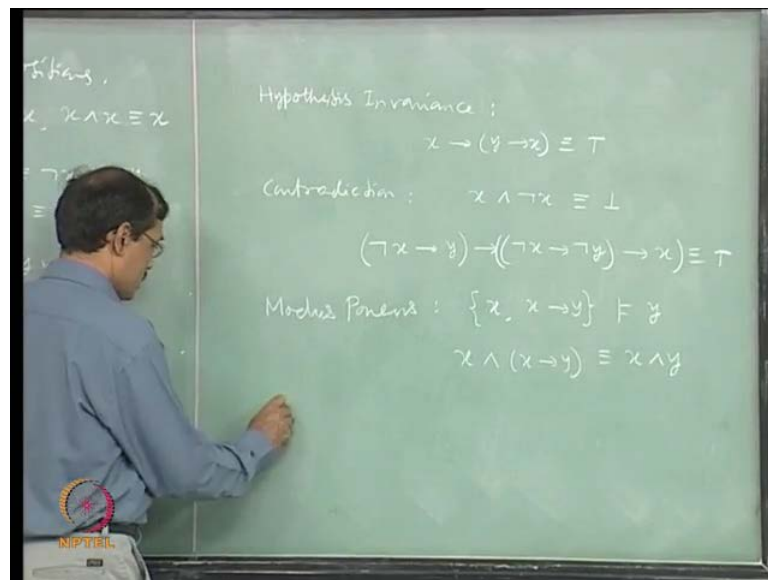 sitions.
x, x ∧ x ≡ x
≡ ¬x
≡
Hypothesis Invariance :
x → (y → x) ≡ ⊤
Contradiction : x ∧ ¬x ≡ ⊥
(¬x → y) → ((¬x → ¬y) → x) ≡ ⊤
Modus Ponens : {x, x → y} ⊨ y
x ∧ (x → y) ≡ x ∧ y
NPTEL